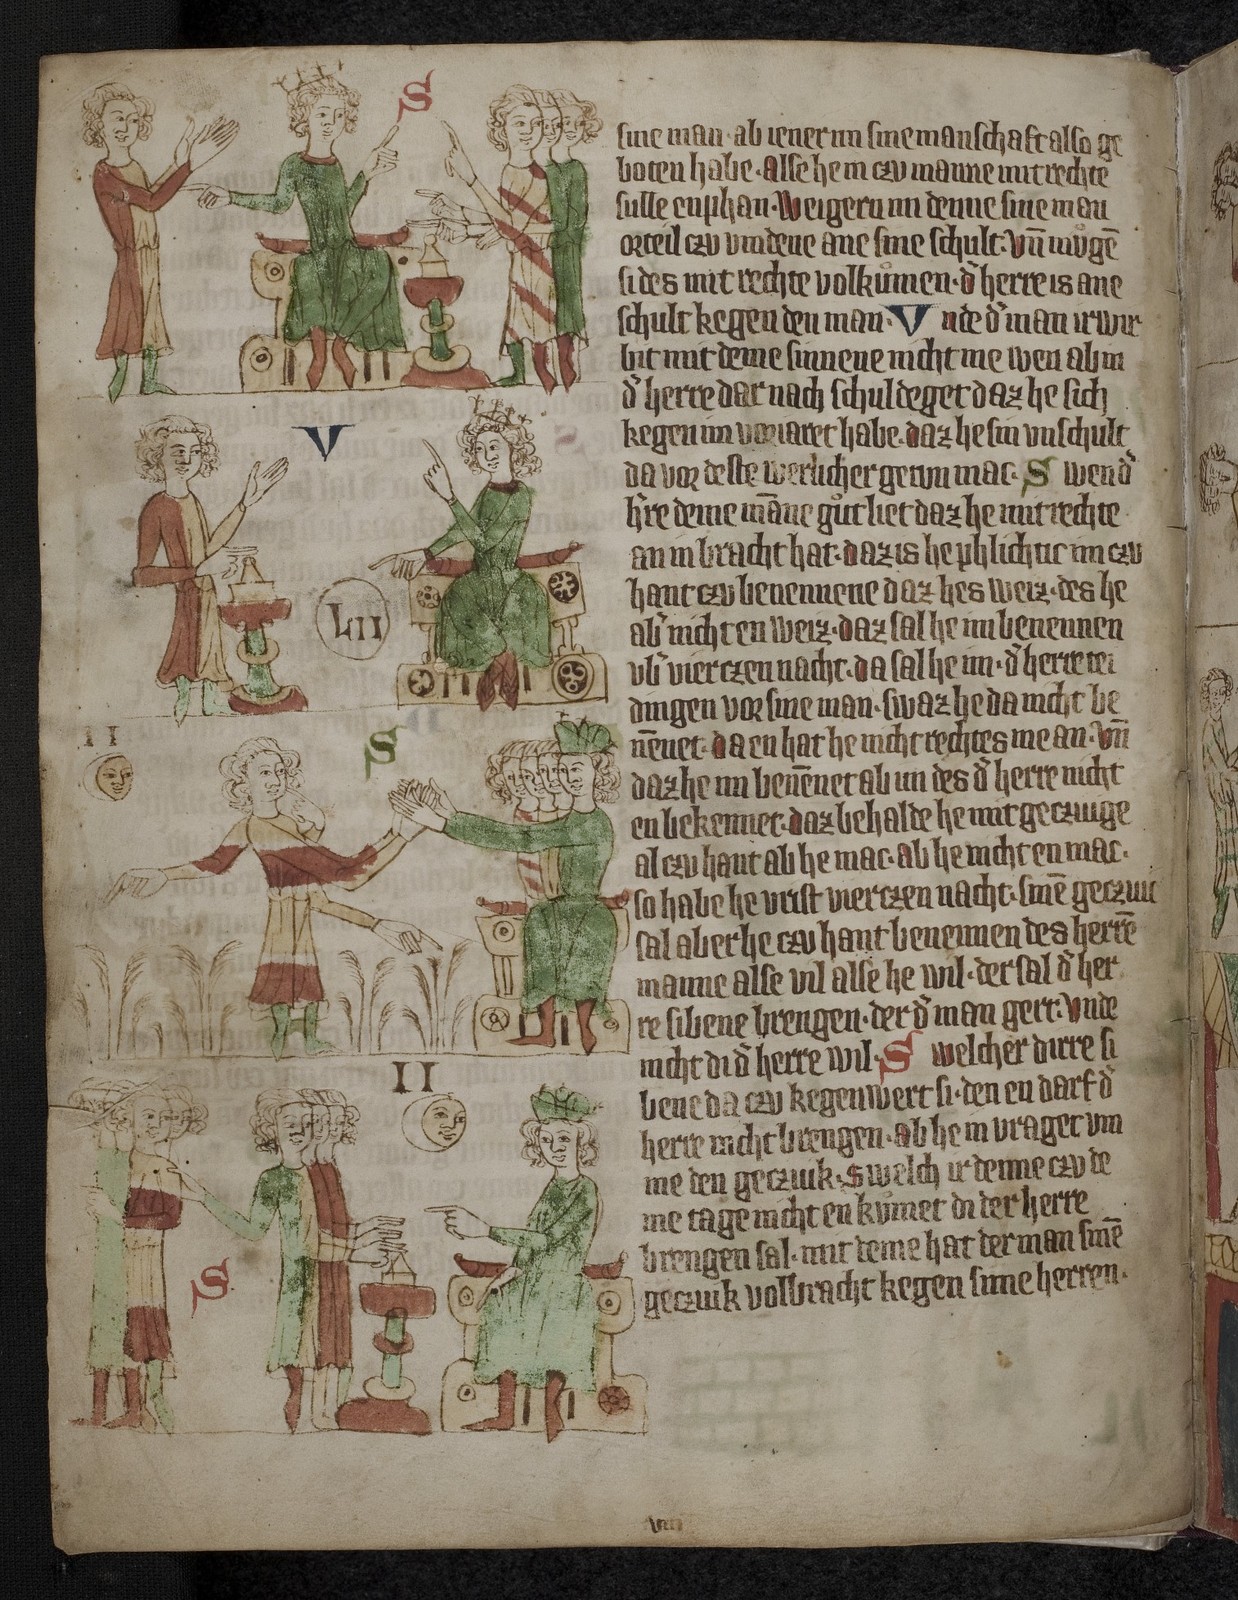 S
V
LII
II
S
II
S
sine man· ab iener im sine manschaft also ge
boten habe· Alse he in czu manne mit rechte
sulle enphan· Weigern im denne sine man
orteil czu vindene ane sine schult· Vn̄ můgē
si des mit rechte volkůmen· d̓ herre is ane
schult kegen den man· Vnde d̓ man irwir
bit mit deme sinnene nicht me wen ab in
d̓ herre dar nach schuldeget daz he sich
kegen im voriaret habe· daz he sin vnschult
da vor deste werlicher getun mac· Swen d̓
h̓re deme māne gůt liet daz he mit rechte
an in bracht hat· daz is he phlichtic im czu
hant czu benennene daz hes weiz· des he
ab̓ nicht en weiz· daz sal he im benennen
vb̓ vierczen nacht· da sal he im· d̓ herre tei
dingen vor sine man· swaz he da nicht be
nēnet· da en hat he nicht rechtes me an· Vn̄
daz he im benēnet ab im des d̓ herre nicht
en bekennet· daz behalde he mit geczuige
al czu hant ab he mac· ab he nicht en mac·
so habe he vrist vierczen nacht· sinē geczuic
sal aber he czu hant benennen des herrē
manne alse vil alse he wil· der sal d̓ her
re sibene brengen· der d̓ man gert· Vnde
nicht di d̓ herre wil· Swelcher dirre si
bene da czu kegenwert si· den en darf d̓
herre nicht brengen· ab he in vraget vm
me den geczuik· Swelch ir denne czu de
me tage nicht en kůmet di der herre
brengen sal· mit deme hat der man sinē
geczuik volbracht kegen sime herren·